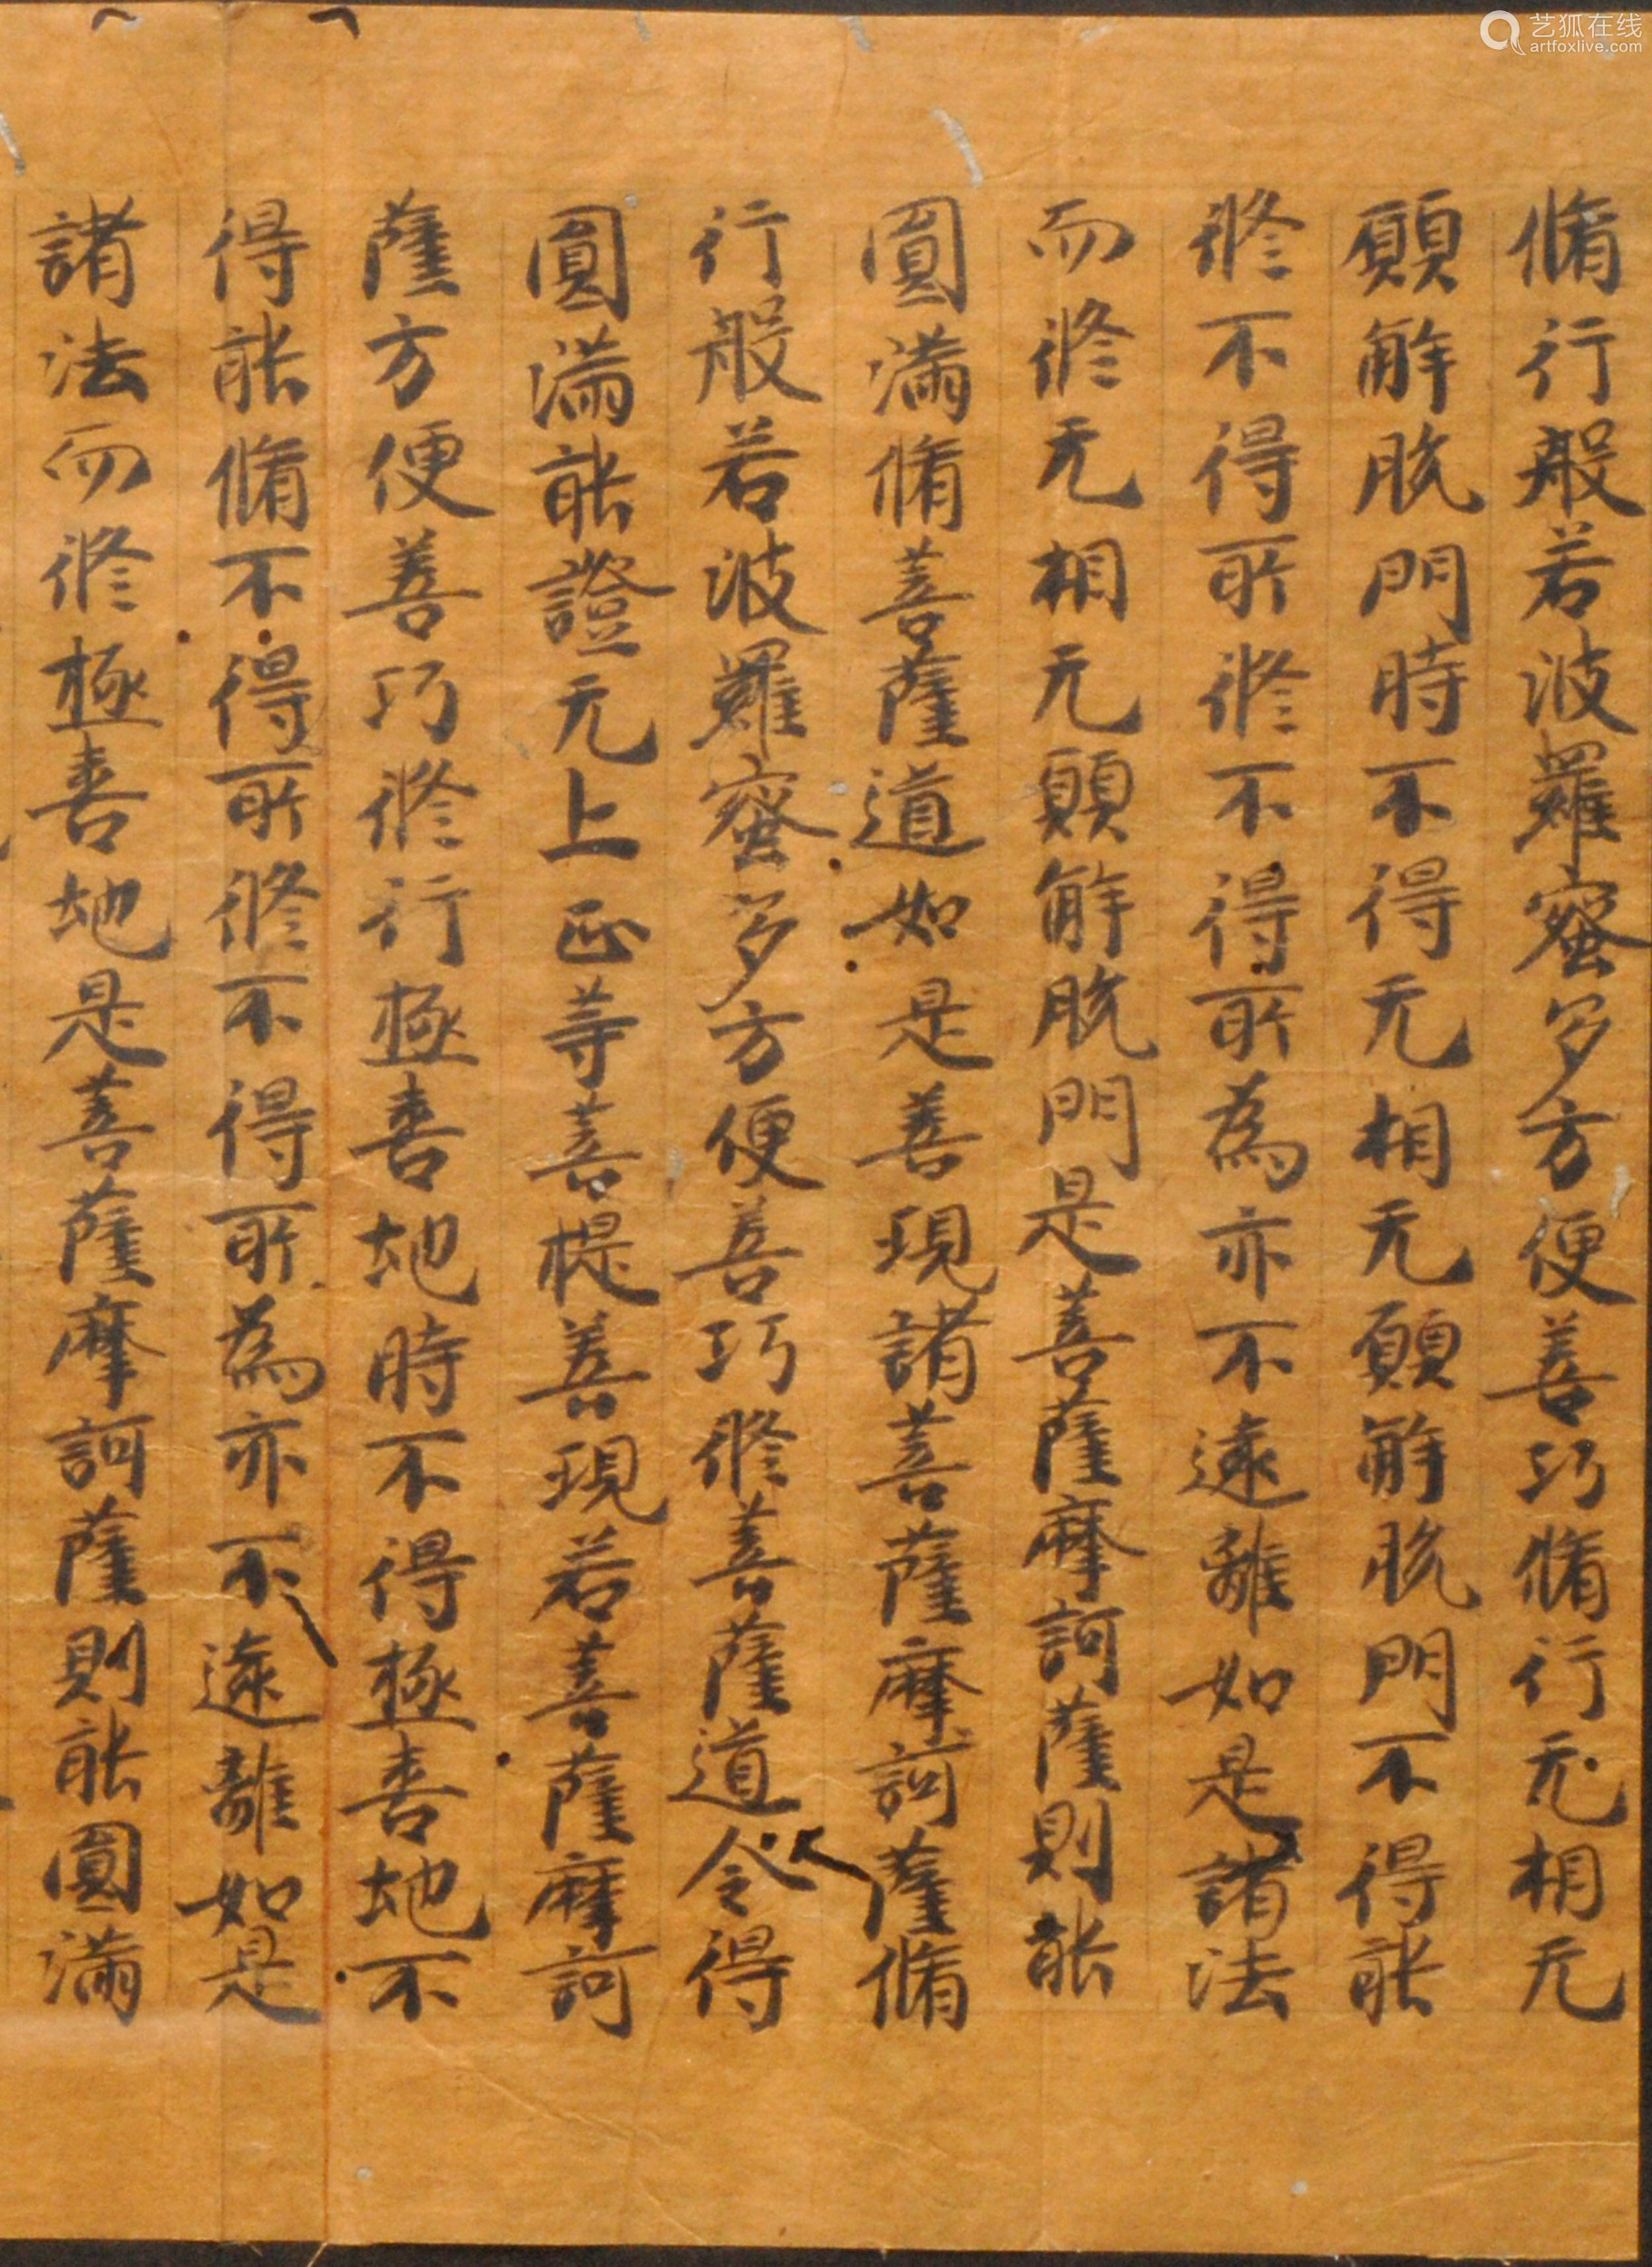 艺狐在线
artfoxlive.com
脩行般若波羅蜜多方便善巧脩行无相无
願解脱門時不得无相无願解脱門不得能
修不得所修不得所為亦不遠離如是諸法
而修无相无願解脱門是菩薩摩訶薩則能
圓滿脩菩薩道如是善現諸菩薩摩訶薩脩
行般若波羅蜜多方便善巧修菩薩道令得
圓滿能證无上正等菩提善現若菩薩摩訶
薩方便善巧修行極喜地時不得極喜地不
得能脩不得所修不得所為亦不遠離如是
諸法而修極喜地是菩薩摩訶薩則能圓滿